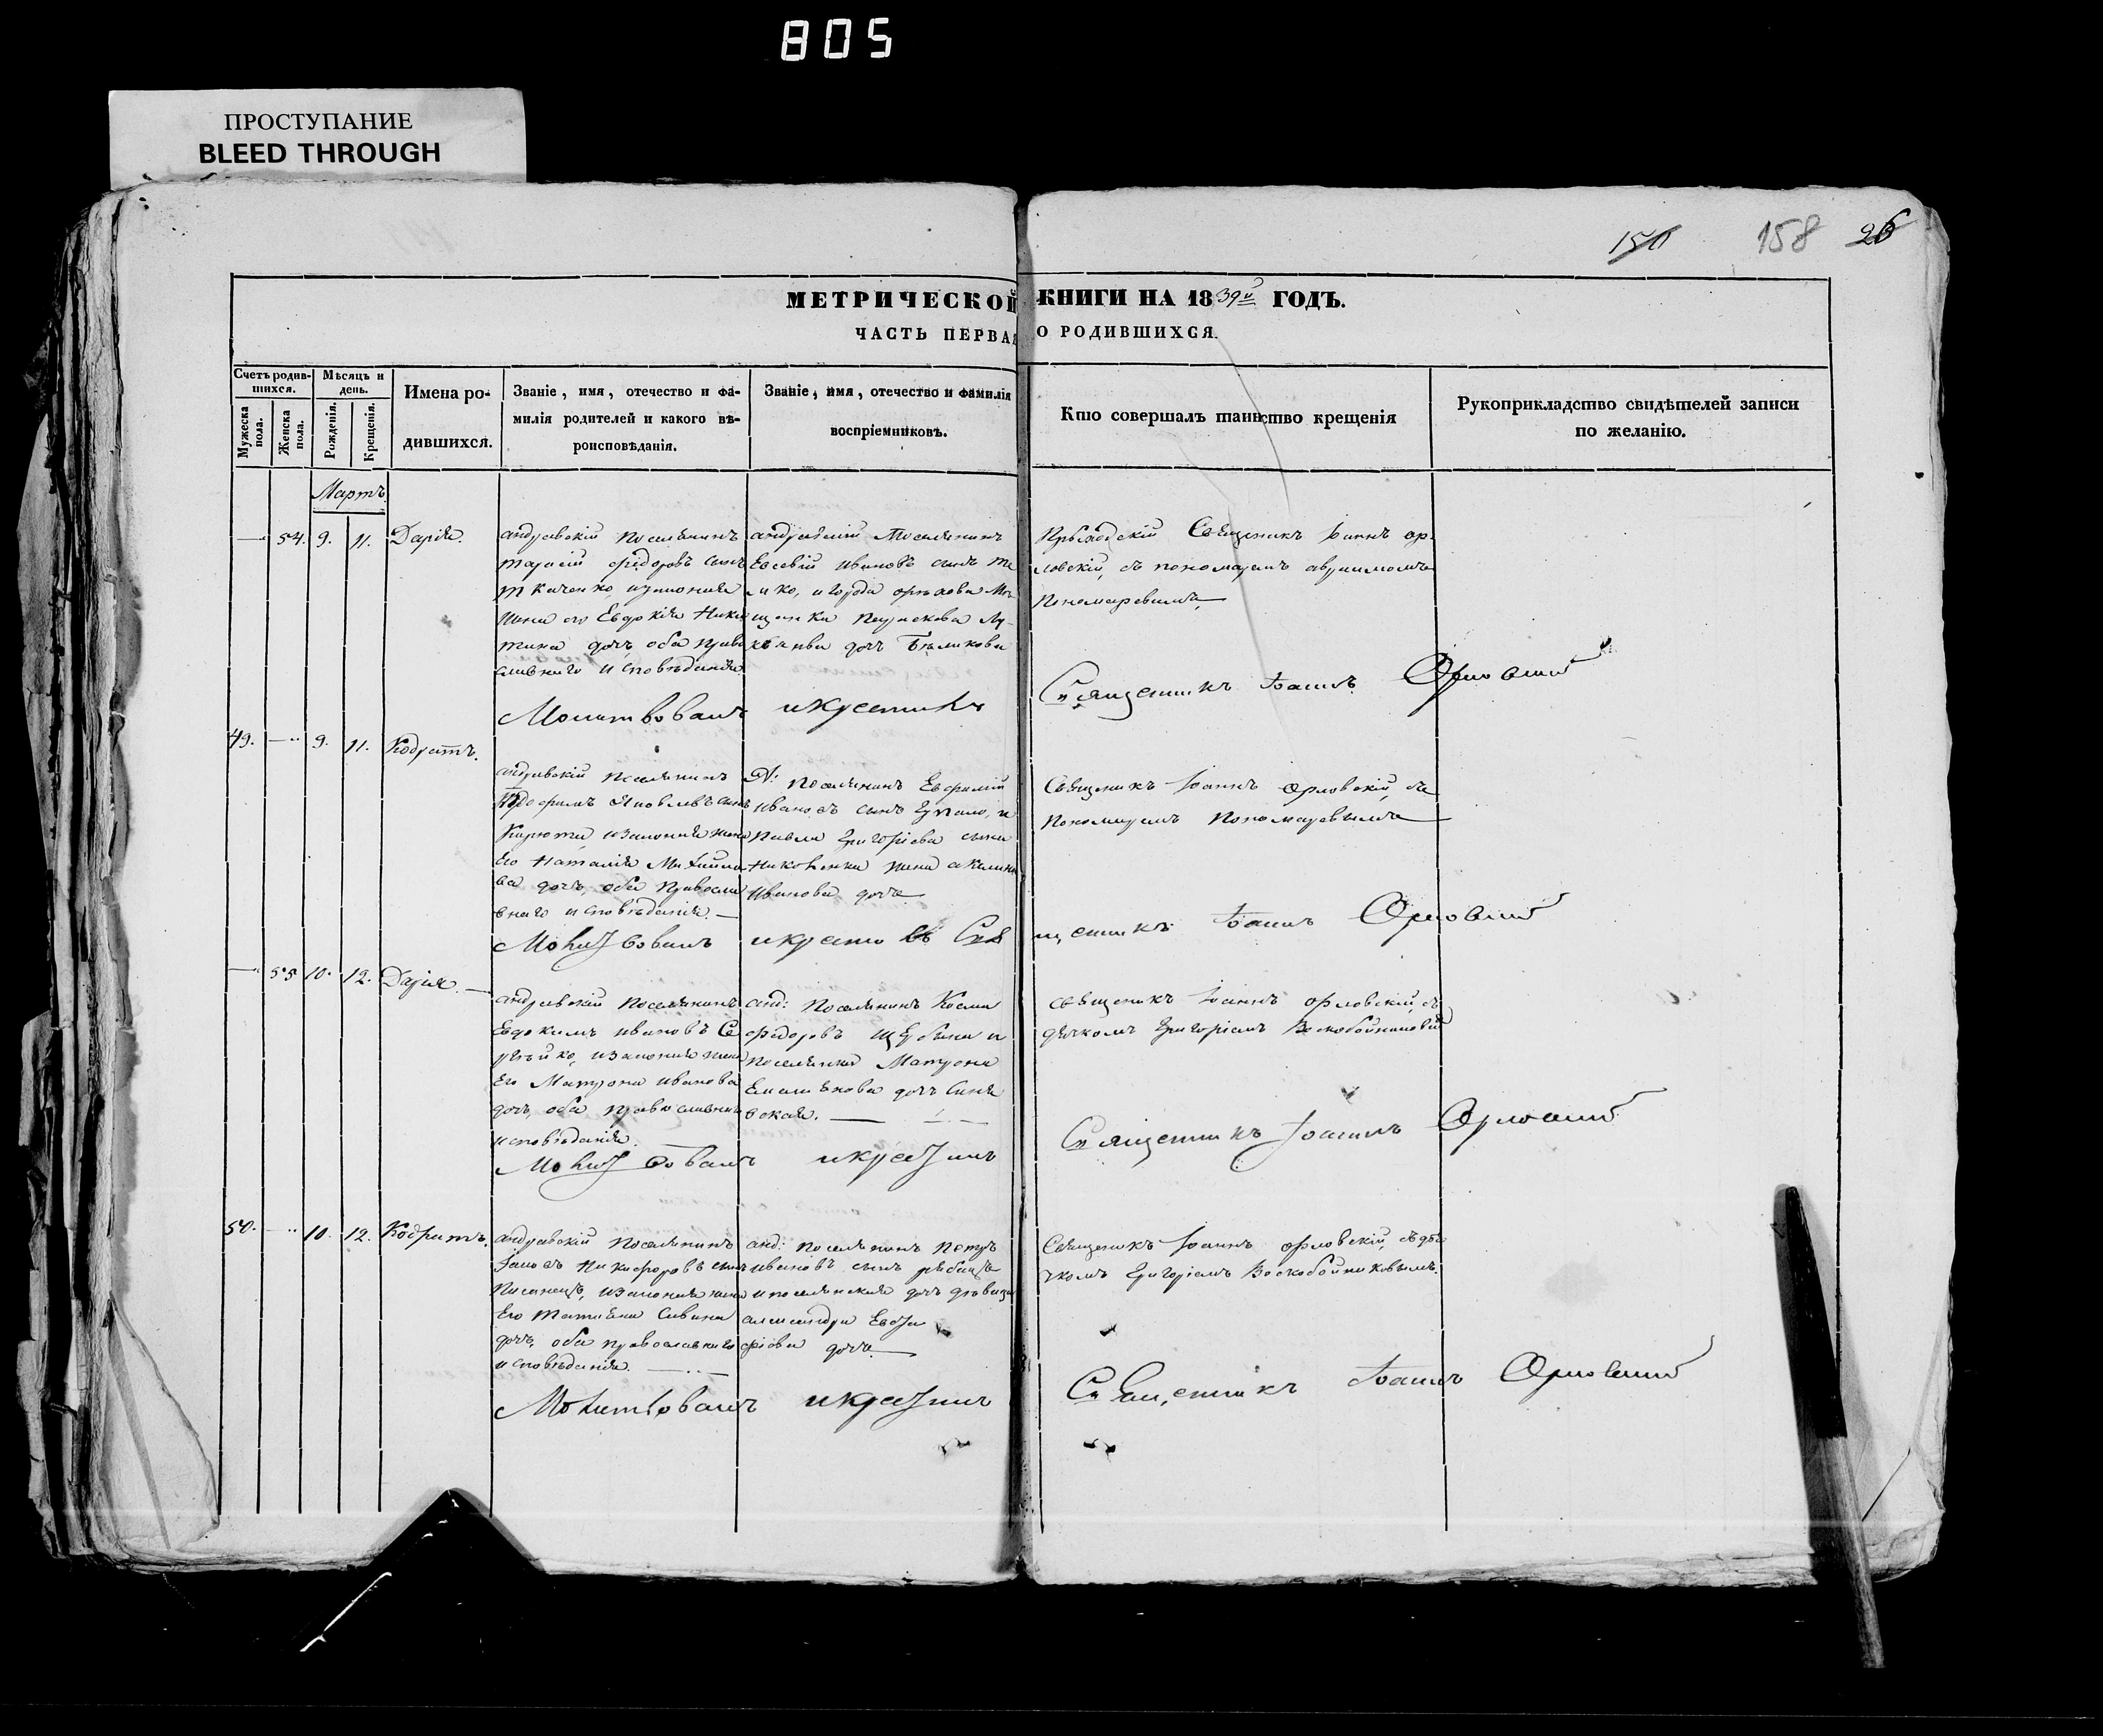 805
ПРОСТУПАНИЕ
BLEED THROUGH
158 26
МЕТРИЧЕСКОЙ КНИГИ НА 1839й ГОДЪ.
ЧАСТЬ ПЕРВАЯ О РОДИВШИХСЯ.
Счетъ родившихся.
Мужеска пола.
Женска пола.
Мѣсяцъ и день.
Рожденія.
Крещенія.
Имена родившихся.
Званіе, имя, отечество и фамилія родителей и какого вѣроисповѣданія.
Званіе, имя, отечество и фамилія воспріемниковъ.
Кто совершалъ таинство крещенія
Рукоприкладство свидѣтелей записи по желанію.
Мартъ
54. 9. 11. Дарія.
андреевскій поселянинъ
тарасій федоровъ сынъ
ткаченко, изаконная
жена его Евдокія Ники
тина дочь, оба право
славнаго исповѣданія
андреевскій поселянинъ
Евсевій ивановъ сынъ
Священникъ Іоаннъ ор
ловскій, съ пономаремъ
Пономаревымъ
Молитвовалъ икрестилъ Священникъ Іоаннъ Орловскій
49. 9. 11. Кодратъ.
андреевскій поселянинъ
Трофимъ Яковлевъ сынъ
изаконная жена
Его Наталія Михайло
ва дочь, оба правосла
внаго исповѣданія.
А: поселянинъ Евфимій
ивановъ сынъ
Павла Григоріева сына
жена акилина
иванова дочь
Священникъ Іоаннъ орловскій, съ
Пономаремъ Пономаревымъ
Молитвовалъ икрестилъ Священникъ Іоаннъ Орловскій
55 10. 12. Дарія.
андреевскій поселянинъ
Евдокимъ ивановъ Се
рѣйко, изаконная жена
Его Матрона иванова
дочь, оба православнаго
исповѣданія.
анд: поселянинъ Косма
федоровъ и
поселянка Матрона
Емельянова дочь Синя
вская.
священникъ Іоаннъ орловскій, съ
дьячкомъ Григоріемъ Воскобойниковымъ
Молитвовалъ икрестилъ Священникъ Іоаннъ Орловскій
50. 10. 12. Кодратъ.
андреевскій поселянинъ
Никифоровъ сынъ
Писанецъ, изаконная жена
Его татіана Савина
дочь, оба православнаго
исповѣданія.
анд: поселянинъ Петръ
ивановъ сынъ
александра
дочь
Священникъ Іоаннъ орловскій, съ дья
чкомъ Григоріемъ Воскобойниковымъ.
Молитвовалъ икрестилъ Священникъ Іоаннъ Орловскій